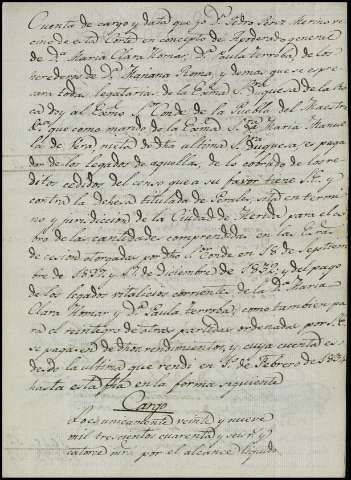 Cuenta de cargo y data que yo Dn. Pedro Sanz Merino ve
cino de esta Corte en concepto de Apoderado general
de Da. Maria Clara Homar, Da. Paula Terriba, de los
herederos de Da. Mariana Romo, y demas que se espre
sara todos legatarios de la Exma. Sra. Duquesa de la Ro
ca doy al Exmo. Sr. Conde de la Puebla del Maestre
que como marido de la Exma. Sra. Da. Maria Manue
la de nieta de dha ultima Sra. Duquesa, es paga
dor de los legados de aquellas, de lo cobrado de los re
ditos cedidos del censo que a su favor tiene S.E. y
contra la dehesa titulada de sita en termi
no y jurisdiccion de la Ciudad de Merida para el co
bro de las cantidades comprendidas en la Escra.
de cesion otorgada por dho Sr. Conde en 18 de Septiem
bre de 1827 y de diciembre de 1832, y del pago
de los legados vitalicios corrientes de la Da. Maria
Clara Homar y Da. Paula Terriba, como tambien pa
ra el reintegro de otras partidas ordenadas por S.E.
se pagasen de dhos rendimientos, y cuya cuenta es
desde la ultima que rendi en 1o. de Febrero de 1834
hasta esta fha en la forma siguiente
Cargo
Lo es unicamente veinte y nueve
mil trescientos cuarenta y seis rs. y
catorce mrs. por el alcance liquido